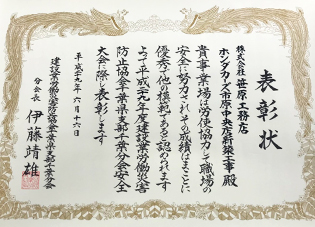 表彰状
株式会社 笹原工務店
ホンダカーズ市原中央店新築工事 殿
貴事業場は労使協力して職場の
安全に努力されその成績はまことに
優秀で他の模範であると認められます
よって平成二十九年度建設業労働災害
防止協会千葉県支部千葉分会安全
大会に際し表彰します
平成二十九年六月十六日
建設業労働災害防止協会千葉県支部千葉分会
分会長 伊藤靖雄